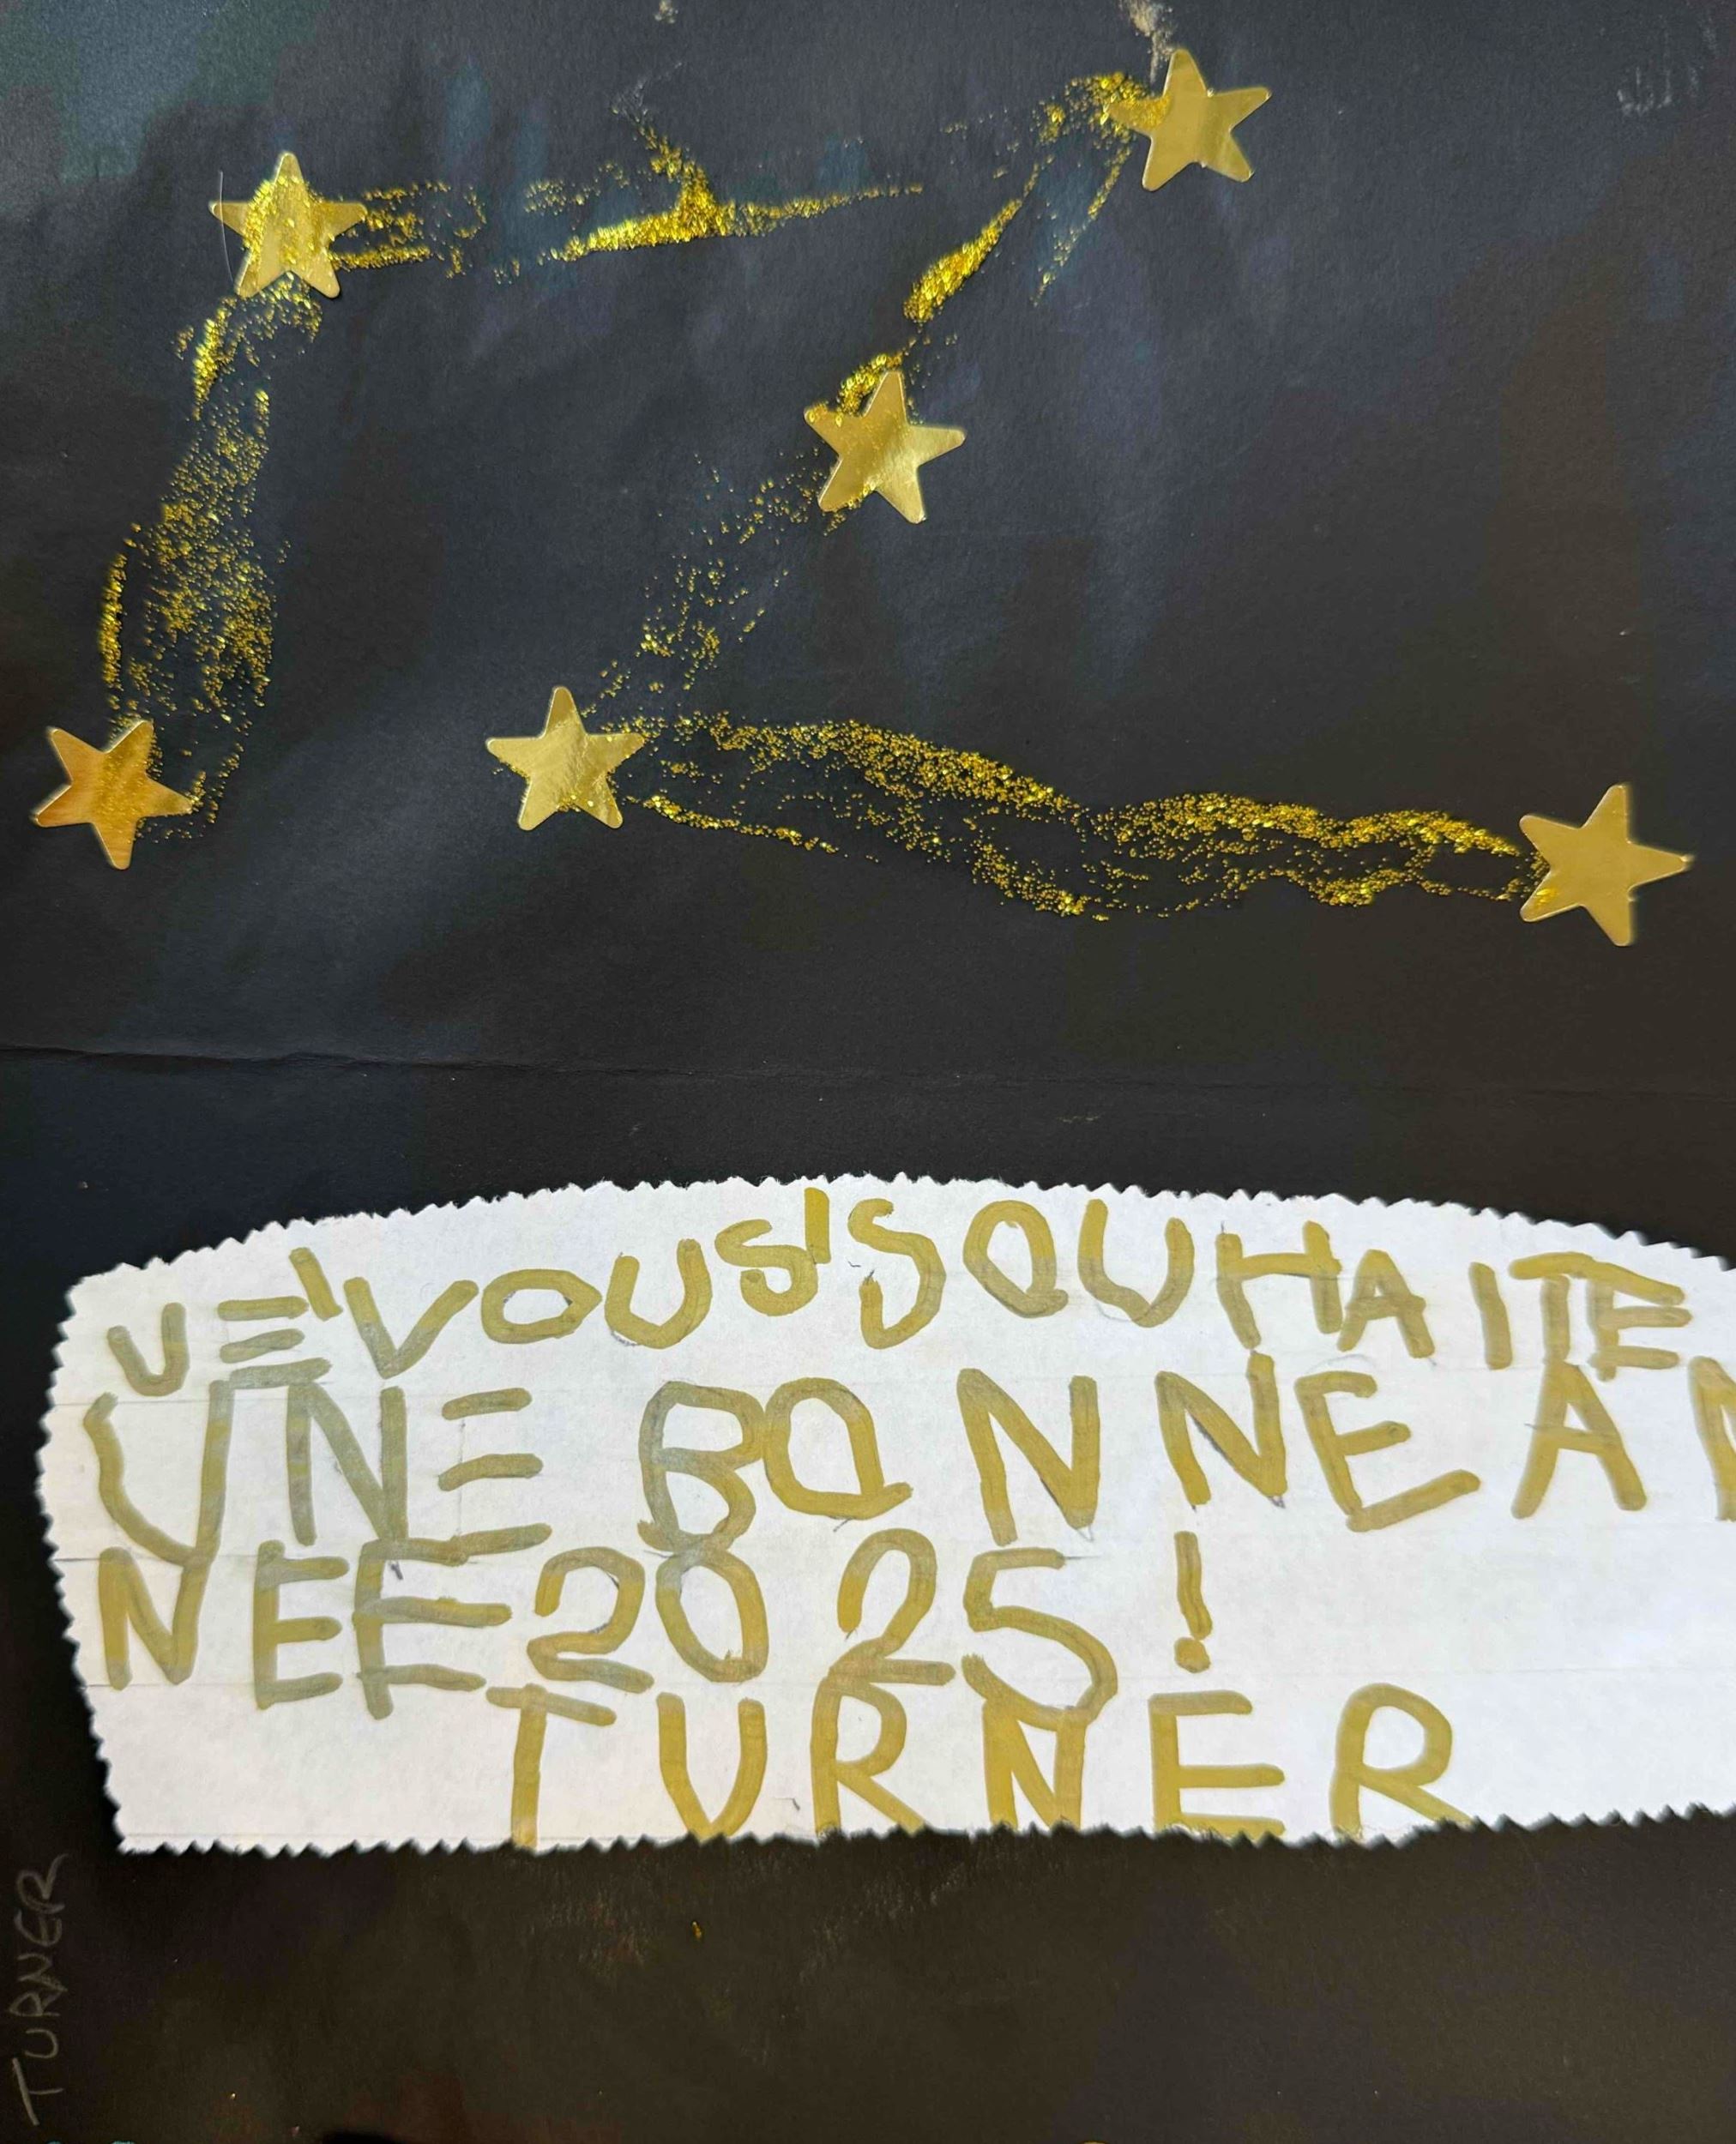 JE'VOUS'SOUHAITE
UNE BONNE AN
NEE 2025 !
TURNER
TURNER